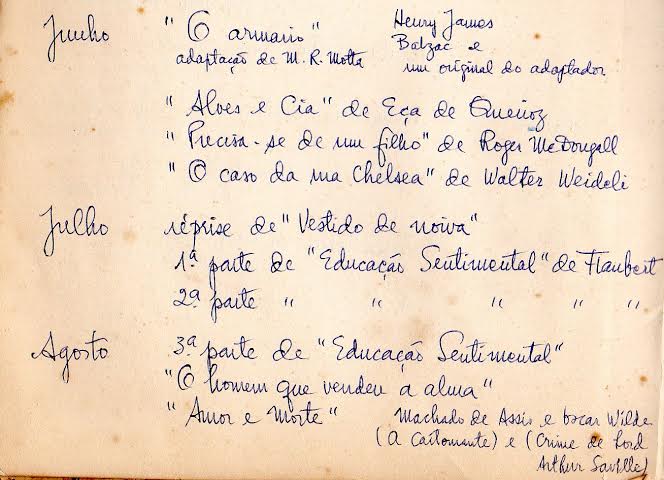 Junho "O armario" Henry James
adaptação de M. R. Motta Balzac e
um original do adaptador
"Alves e Cia" de Eça de Queiroz
"Precisa-se de um filho" de Roger McDougall
"O caso da rua Chelsea" de Walter Weideli
Julho réprise de "Vestido de noiva"
1ª parte de "Educação Sentimental" de Flaubert
2ª parte " " " " "
Agosto 3ª parte de "Educação Sentimental"
"O homem que vendeu a alma"
"Amor e Morte" Machado de Assis e Oscar Wilde
(A Cartomante) e (Crime de Lord
Arthur Saville)